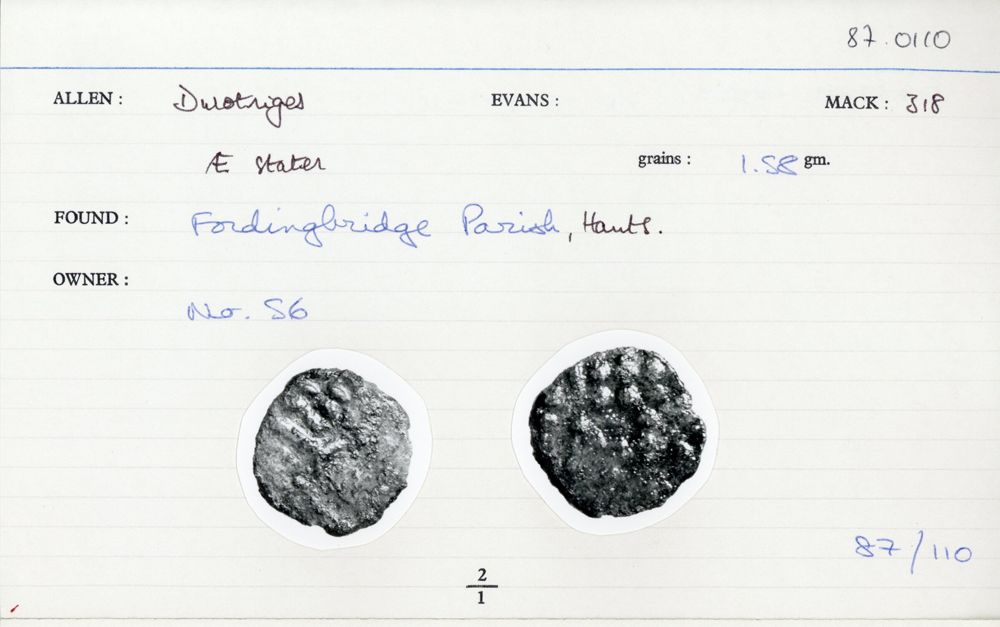 87.0110
ALLEN: Durotriges EVANS: MACK: 318
Æ stater grains: 1.58 gm.
FOUND: Fordingbridge Parish, Hants.
OWNER:
No. 56
87/110
2
1